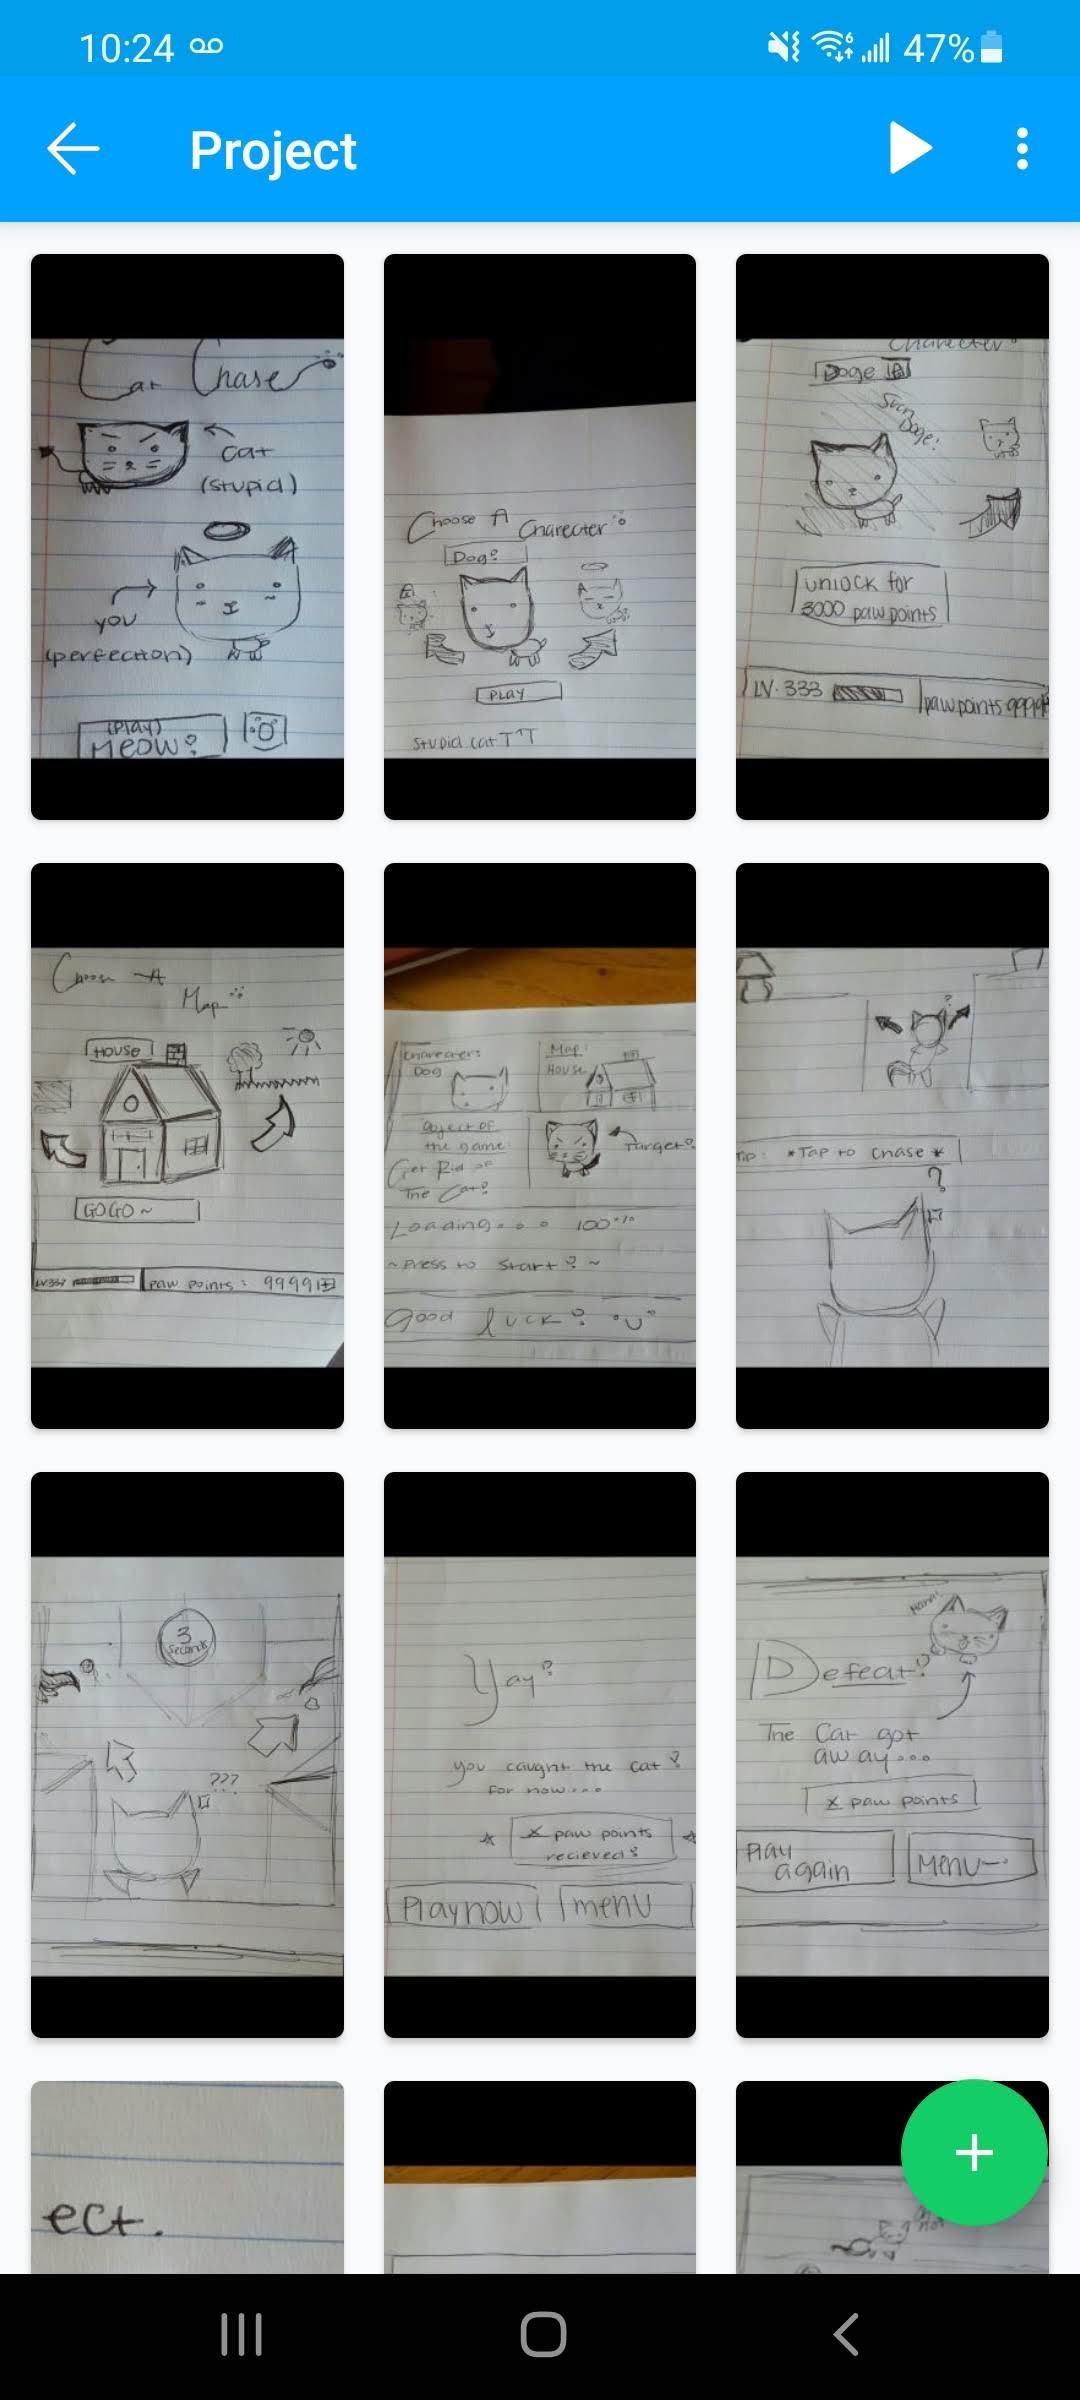 10:24
6 47%
Project
Cat Chase
cat
(stupid)
you
(perfection)
(Play)
MEOW?
Choose A
Charecter
Dog?
PLAY
stupid cat T^T
Charecter
Doge
Doge!
unlock for
3000 paw points
LV. 333
paw points 9999
Choose A
Map
HOUSE
GOGO ~
LV.333
paw points: 9999
Charecter:
DOG
Map:
House
Object OF
the game:
Get Rid of
The Cat?
Target?
Loading... 100%
~Press to Start? ~
Good luck?
?
TIP: *Tap to chase*
?
3
Seconds
???
Yay?
you caught the cat?
for now...
X paw points
recieved?
Play now
menu
Defeat?
The Cat got
away...
X paw points
Play
again
Menu
ect.